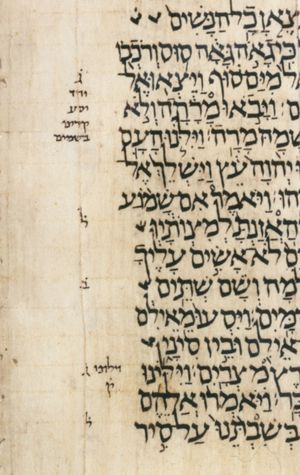 צֶאןָ כָל הַנָּשִׁים
כִּי גָאֹה גָּאָה סוּס וְרֹכְבוֹ
ל מִיַּם סוּף וַיֵּצְאוּ אֶל
ים׃ וַיָּבֹאוּ מָרָתָה וְלֹא
שְׁמָהּ מָרָה׃ וַיִּלֹּנוּ הָעָם
יְהוָה עֵץ וַיַּשְׁלֵךְ אֶל
הוּ׃ וַיֹּאמֶר אִם שָׁמוֹעַ
הַאֲזַנְתָּ לְמִצְוֹתָיו
ים לֹא אָשִׂים עָלֶיךָ
מָה וְשָׁם שְׁתֵּים
מָּיִם׃ וַיִּסְעוּ מֵאֵילִם
אֵילִם וּבֵין סִינָי
רֶץ מִצְרָיִם׃ וַיִּלֹּינוּ
בָּר׃ וַיֹּאמְרוּ אֲלֵהֶם
בְּשִׁבְתֵּנוּ עַל סִיר
ג
יסע
קדים
בשמים
ל
ב
וילונו
ק
ל